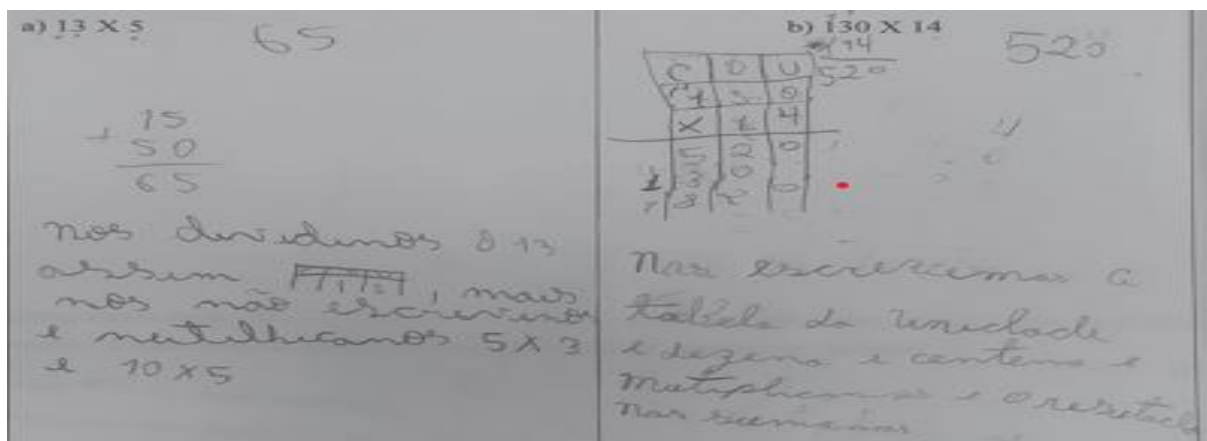 a) 13 X 5
65
15
+ 50
65
nos dividimos o 13
assim , mais
nos não escrevemos
e mutilhicamos 5X3
e 10X5
b) 130 X 14
520
520
C D U
X 1 4
5 2 0
1 3 0
Nas escrevemos a
tabela da unidade
e dezena e centena e
mutiplicamos e o resultado
nas somamos